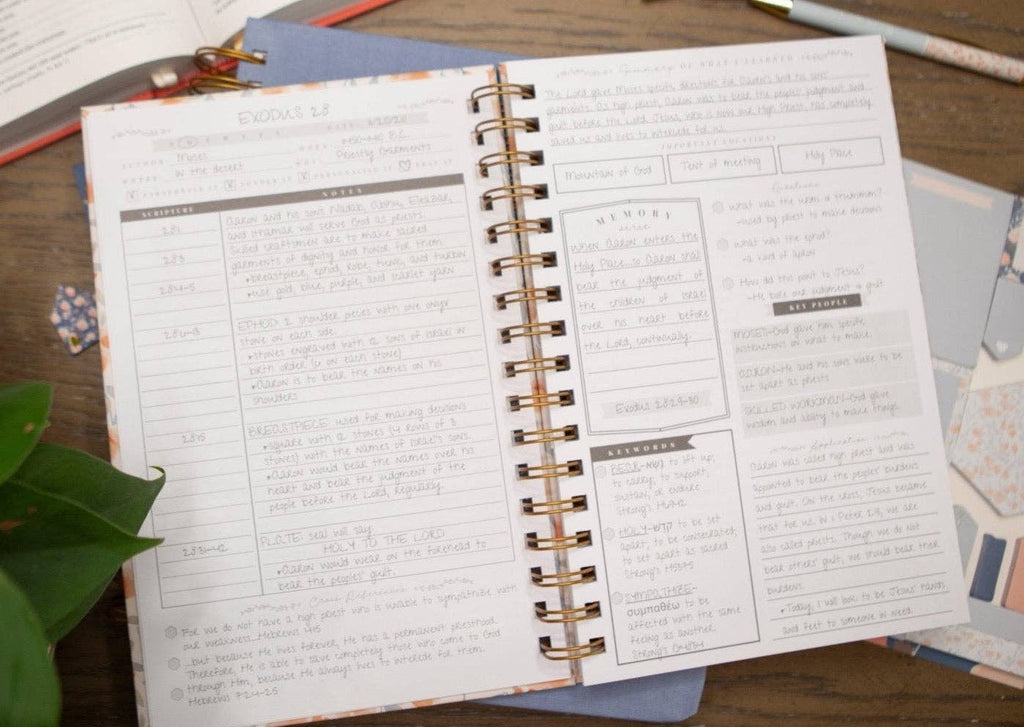 EXODUS 28
NOTES
DATE
AUTHOR: Moses
WHEN: 1450-1410 B.C.
WHERE: in the desert
WHAT: Priestly Garments
SCRIPTURE
NOTES
28:1
Aaron and his sons Nadab, Abihu, Eleazar,
and Ithamar will serve God as priests.
28:3
Skilled craftsmen are to make sacred
garments of dignity and honor for them.
28:4-5
•breastpiece, ephod, robe, tunic, and turban
•use gold, blue, purple, and scarlet yarn
EPHOD: 2 shoulder pieces with one onyx
stone on each side
•stones engraved with 12 sons of Israel in
birth order (6 on each stone)
•Aaron is to bear the names on his
shoulders
28:15
BREASTPIECE: used for making decisions
•square with 12 stones (4 rows of 3
stones) with the names of Israel's sons.
•Aaron would bear the names over his
heart and bear the judgment of the
people before the Lord, regularly.
PLATE: seal will say:
HOLY TO THE LORD
•Aaron would wear on the forehead to
bear the peoples' guilt.
Cross References
For we do not have a high priest who is unable to sympathize with
our weakness...Hebrews 4:15
...but because He lives forever, He has a permanent priesthood.
Therefore, He is able to save completely those who come to God
through Him, because He always lives to intercede for them.
Hebrews 7:24-25
Summary OF WHAT I LEARNED
The Lord gave Moses specific directions for Aaron's and his sons'
garments. As high priest, Aaron was to bear the peoples' judgment and
guilt before the Lord. Jesus, who is now our High Priest, has completely
saved us and lives to intercede for us.
IMPORTANT LOCATIONS
Mountain of God
Tent of meeting
Holy Place
MEMORY
verse
When Aaron enters the
Holy Place...so Aaron shall
bear the judgment of
the children of Israel
over his heart before
the Lord, continually.
Exodus 28:29-30
Questions
What was the Urim & Thummim?
-used by priest to make decisions
What was the ephod?
-a kind of apron
How did this point to Jesus?
-He bore our judgment & guilt
KEY PEOPLE
MOSES-God gave him specific
instructions on what to make.
AARON-He and his sons were to be
set apart as priests
SKILLED WORKMAN-God gave
wisdom and ability to make things.
KEYWORDS
BEAR-נשא to lift up,
to carry, to support,
sustain, or endure
HOLY-קדש to be set
apart, to be consecrated,
to set apart as sacred
SYMPATHIZE-
συμπαθέω to be
affected with the same
feeling as another
Application
Aaron was called high priest and was
appointed to bear the peoples' burdens
and guilt. On the cross, Jesus became
that for us. In 1 Peter 2:9, we are
also called priests. Though we do not
bear others' guilt, we should bear their
burdens.
•Today, I will look to be Jesus' hands
and feet to someone in need.